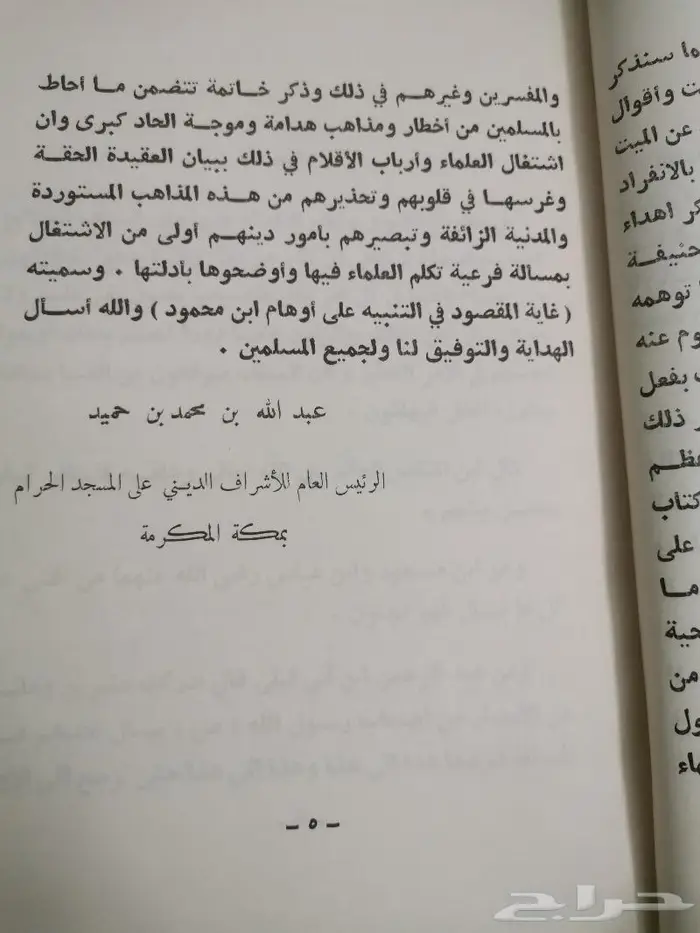 والمفسرين وغيرهم في ذلك وذكر خاتمة تتضمن ما أحاط
بالمسلمين من أخطار ومذاهب هدامة وموجة الحاد كبرى وان
اشتغال العلماء وأرباب الأقلام في ذلك ببيان العقيدة الحقة
وغرسها في قلوبهم وتحذيرهم من هذه المذاهب المستوردة
والمدنية الزائفة وتبصيرهم بامور دينهم أولى من الاشتغال
بمسالة فرعية تكلم العلماء فيها وأوضحوها بأدلتها . وسميته
( غاية المقصود في التنبيه على أوهام ابن محمود ) والله أسأل
الهداية والتوفيق لنا ولجميع المسلمين .
عبد الله بن محمد بن حميد
الرئيس العام للأشراف الديني على المسجد الحرام
بمكة المكرمة
– ٥ –
سنذكر
وأقوال
عن الميت
بالانفراد
اهداء
حنيفة
توهمه
عنه
بفعل
ذلك
كتاب
على
ما
من
حراج